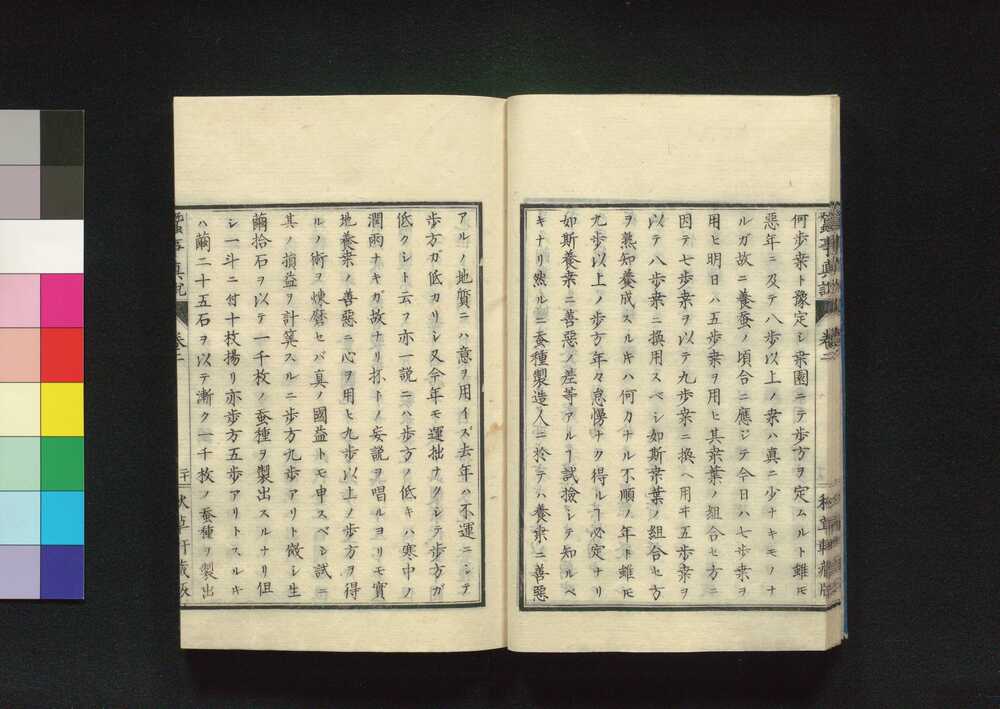 蚕事真説 巻二 秋草軒蔵版
何歩桒ト豫定シ桒園ニテ歩方ヲ定ムルト雖𪜈
惡年ニ及テ八歩以上ノ桒ハ真ニ少ナキモノナ
ルガ故ニ養蚕ノ頃合ニ應ジテ今日ハ七歩桒ヲ
用ヒ明日ハ五歩桒ヲ用ヒ其桒葉ノ組合セ方ニ
因テ七歩桒ヲ以テ九歩桒ニ換ヘ用ヰ五歩桒ヲ
以テ八歩桒ニ換用スベシ如斯桒葉ノ組合セ方
ヲ熟知養成スルキハ何力ナル不順ノ年ト雖𪜈
九歩以上ノ歩方年々怠慢ナク得ルヿ必定ナリ
如斯養桒ニ善惡ノ差等アルヿ試撿シテ知ルベ
キナリ然ルニ蚕種製造人ニ於テハ養桒ニ善惡
アルノ地質ニハ意ヲ用イズ去年ハ不運ニシテ
歩方ガ低カリシ又今年モ運拙ナクシテ歩方ガ
低クシト云フ亦一説ニハ歩方ノ低キハ寒中ノ
潤雨ナキガ故ナリ抔トノ妄説ヲ唱ルヨリモ實
地養桒ノ善惡ニ心ヲ用ヒ九歩以上ノ歩方ヲ得
ルノ術ヲ煉磨セバ真ノ國益トモ申スベシ試ニ
其ノ損益ヲ計筭スルニ歩方九歩アリト假シ生
繭拾石ヲ以テ一千枚ノ蚕種ヲ製出スルナリ但
シ一斗ニ付十枚揚リ亦歩方五歩アリトスルキ
ハ繭二十五石ヲ以テ漸ク一千枚ノ蚕種ヲ製出
蚕事真説 巻二 二十 秋草軒蔵版